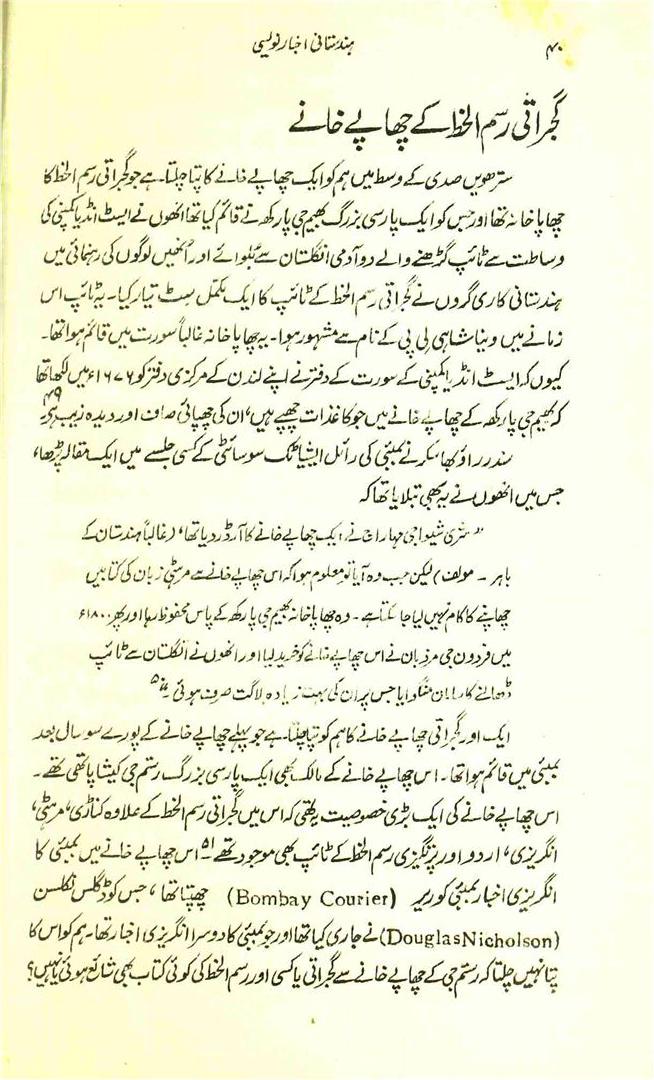 ۴۰ ہندستانی اخبار نویسی
گجراتی رسم الخط کے چھاپے خانے
سترھویں صدی کے وسط میں ہم کو ایک چھاپے خانے کا پتا چلتا ہے جو گجراتی رسم الخط کا
چھاپا خانہ تھا اور جس کو ایک پارسی بزرگ بھیم جی پارکھ نے قائم کیا تھا انھوں نے ایسٹ انڈیا کمپنی کی
وساطت سے ٹائپ گڑھنے والے دو آدمی انگلستان سے بُلوائے اور اُنھیں لوگوں کی رہنمائی میں
ہندستانی کاری گروں نے گجراتی رسم الخط کے ٹائپ کا ایک مکمل سٹ تیار کیا۔ یہ ٹائپ اس
زمانے میں وینا شاہی لپی کے نام سے مشہور ہوا۔ یہ چھاپا خانہ غالباً سورت میں قائم ہوا تھا۔
کیوں کہ ایسٹ انڈیا کمپنی کے سورت کے دفتر نے اپنے لندن کے مرکزی دفتر کو ۱۶۷۶ء میں لکھا تھا
کہ بھیم جی پارکھ کے چھاپے خانے میں جو کاغذات چھپے ہیں، ان کی چھپائی صاف اور دیدہ زیب ہے۔۴۹
سندر راؤ بھاسکر نے بمبئی کی رائل ایشیاٹک سوسائٹی کے کسی جلسے میں ایک مقالہ پڑھا،
جس میں انھوں نے یہ بھی بتلایا تھا کہ
”شری شیواجی مہاراج نے ایک چھاپے خانے کا آرڈر دیا تھا، (غالباً ہندستان کے
باہر ۔ مولف) لیکن جب وہ آیا تو معلوم ہوا کہ اس چھاپے خانے سے مرہٹی زبان کی کتابیں
چھاپنے کا کام نہیں لیا جا سکتا ہے۔ وہ چھاپا خانہ بھیم جی پارکھ کے پاس محفوظ رہا اور پھر ۱۸۰۰ء
میں فردون جی مرزبان نے اس چھاپے خانے کو خرید لیا اور انھوں نے انگلستان سے ٹائپ
ڈھالنے کا سامان منگوایا جس پر ان کی بہت زیادہ لاگت صرف ہوئی۔“۵۰
ایک اور گجراتی چھاپے خانے کا ہم کو پتا چلتا ہے جو پہلے چھاپے خانے کے پورے سو سال بعد
بمبئی میں قائم ہوا تھا۔ اس چھاپے خانے کے مالک بھی ایک پارسی بزرگ رستم جی کیشا پاتھی تھے۔
اس چھاپے خانے کی ایک بڑی خصوصیت یہ تھی کہ اس میں گجراتی رسم الخط کے علاوہ کناڑی، مرہٹی،
انگریزی، اردو اور پرتگیزی رسم الخط کے ٹائپ بھی موجود تھے۔۵۱ اس چھاپے خانے میں بمبئی کا
انگریزی اخبار بمبئی کوریر (Bombay Courier) چھپتا تھا، جس کو ڈگلس نکلسن
(Douglas Nicholson) نے جاری کیا تھا اور جو بمبئی کا دوسرا انگریزی اخبار تھا۔ ہم کو اس کا
پتا نہیں چلتا کہ رستم جی کے چھاپے خانے سے گجراتی یا کسی اور رسم الخط کی کوئی کتاب بھی شائع ہوئی یا نہیں؟